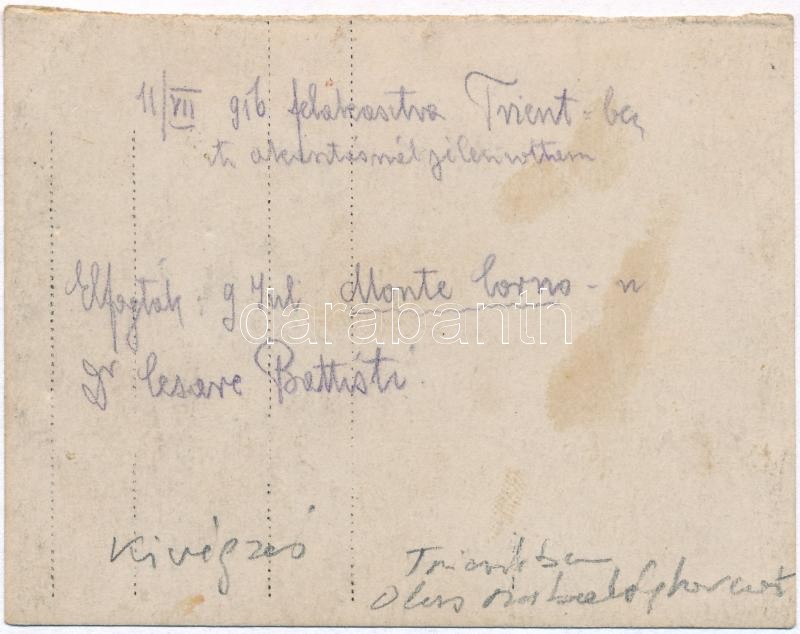 11/VII 916 felakasztva Trient-be,
akasztásnál jelen voltam
Elfogták: 9 Jul Monte Corno-n
Dr Cesare Battisti
darabanth
Kivégzés
Trientben
Olasz szabadságharcos